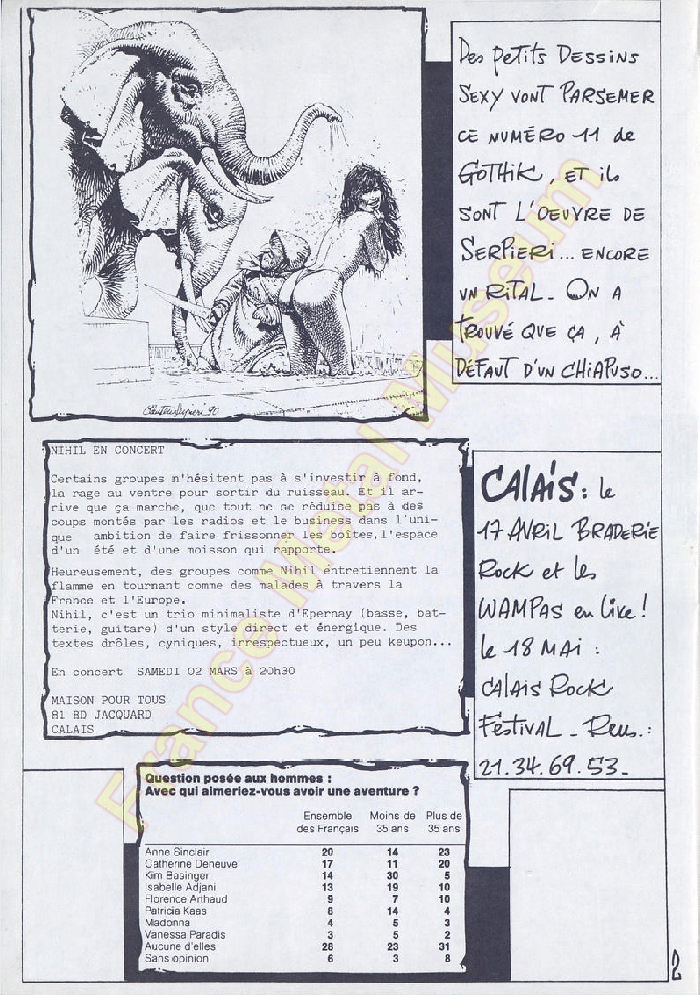 Des petits dessins
sexy vont parsemer
ce numéro 11 de
Gothik, et ils
sont l'oeuvre de
Serpieri... encore
un rital_ On a
trouvé que ça, à
défaut d'un Chiapuso...
NIHIL EN CONCERT
Certains groupes n'hésitent pas à s'investir à fond,
la rage au ventre pour sortir du ruisseau. Et il ar-
rive que ça marche, que tout ne se réduise pas à des
coups montés par les radios et le business dans l'uni-
que ambition de faire frissonner les boîtes, l'espace
d'un été et d'une moisson qui rapporte.
Heureusement, des groupes comme Nihil entretiennent la
flamme en tournant comme des malades à travers la
France et l'Europe.
Nihil, c'est un trio minimaliste d'Epernay (basse, bat-
terie, guitare) d'un style direct et énergique. Des
textes drôles, cyniques, irrespectueux, un peu keupon...
En concert SAMEDI 02 MARS à 20h30
MAISON POUR TOUS
81 BD JACQUARD
CALAIS
CALAIS : le
17 AVRIL BRADERIE
Rock et les
WAMPAS en live !
le 18 MAI :
CALAIS ROCK
FESTIVAL _ Rens. :
21.34.69.53_
Question posée aux hommes :
Avec qui aimeriez-vous avoir une aventure ?
Ensemble des Français Moins de 35 ans Plus de 35 ans
Anne Sinclair 20 14 23
Catherine Deneuve 17 11 20
Kim Basinger 14 30 5
Isabelle Adjani 13 19 10
Florence Arthaud 9 7 10
Patricia Kaas 8 14 4
Madonna 4 5 3
Vanessa Paradis 3 5 2
Aucune d'elles 28 23 31
Sans opinion 6 3 8
2
France Metal Museum